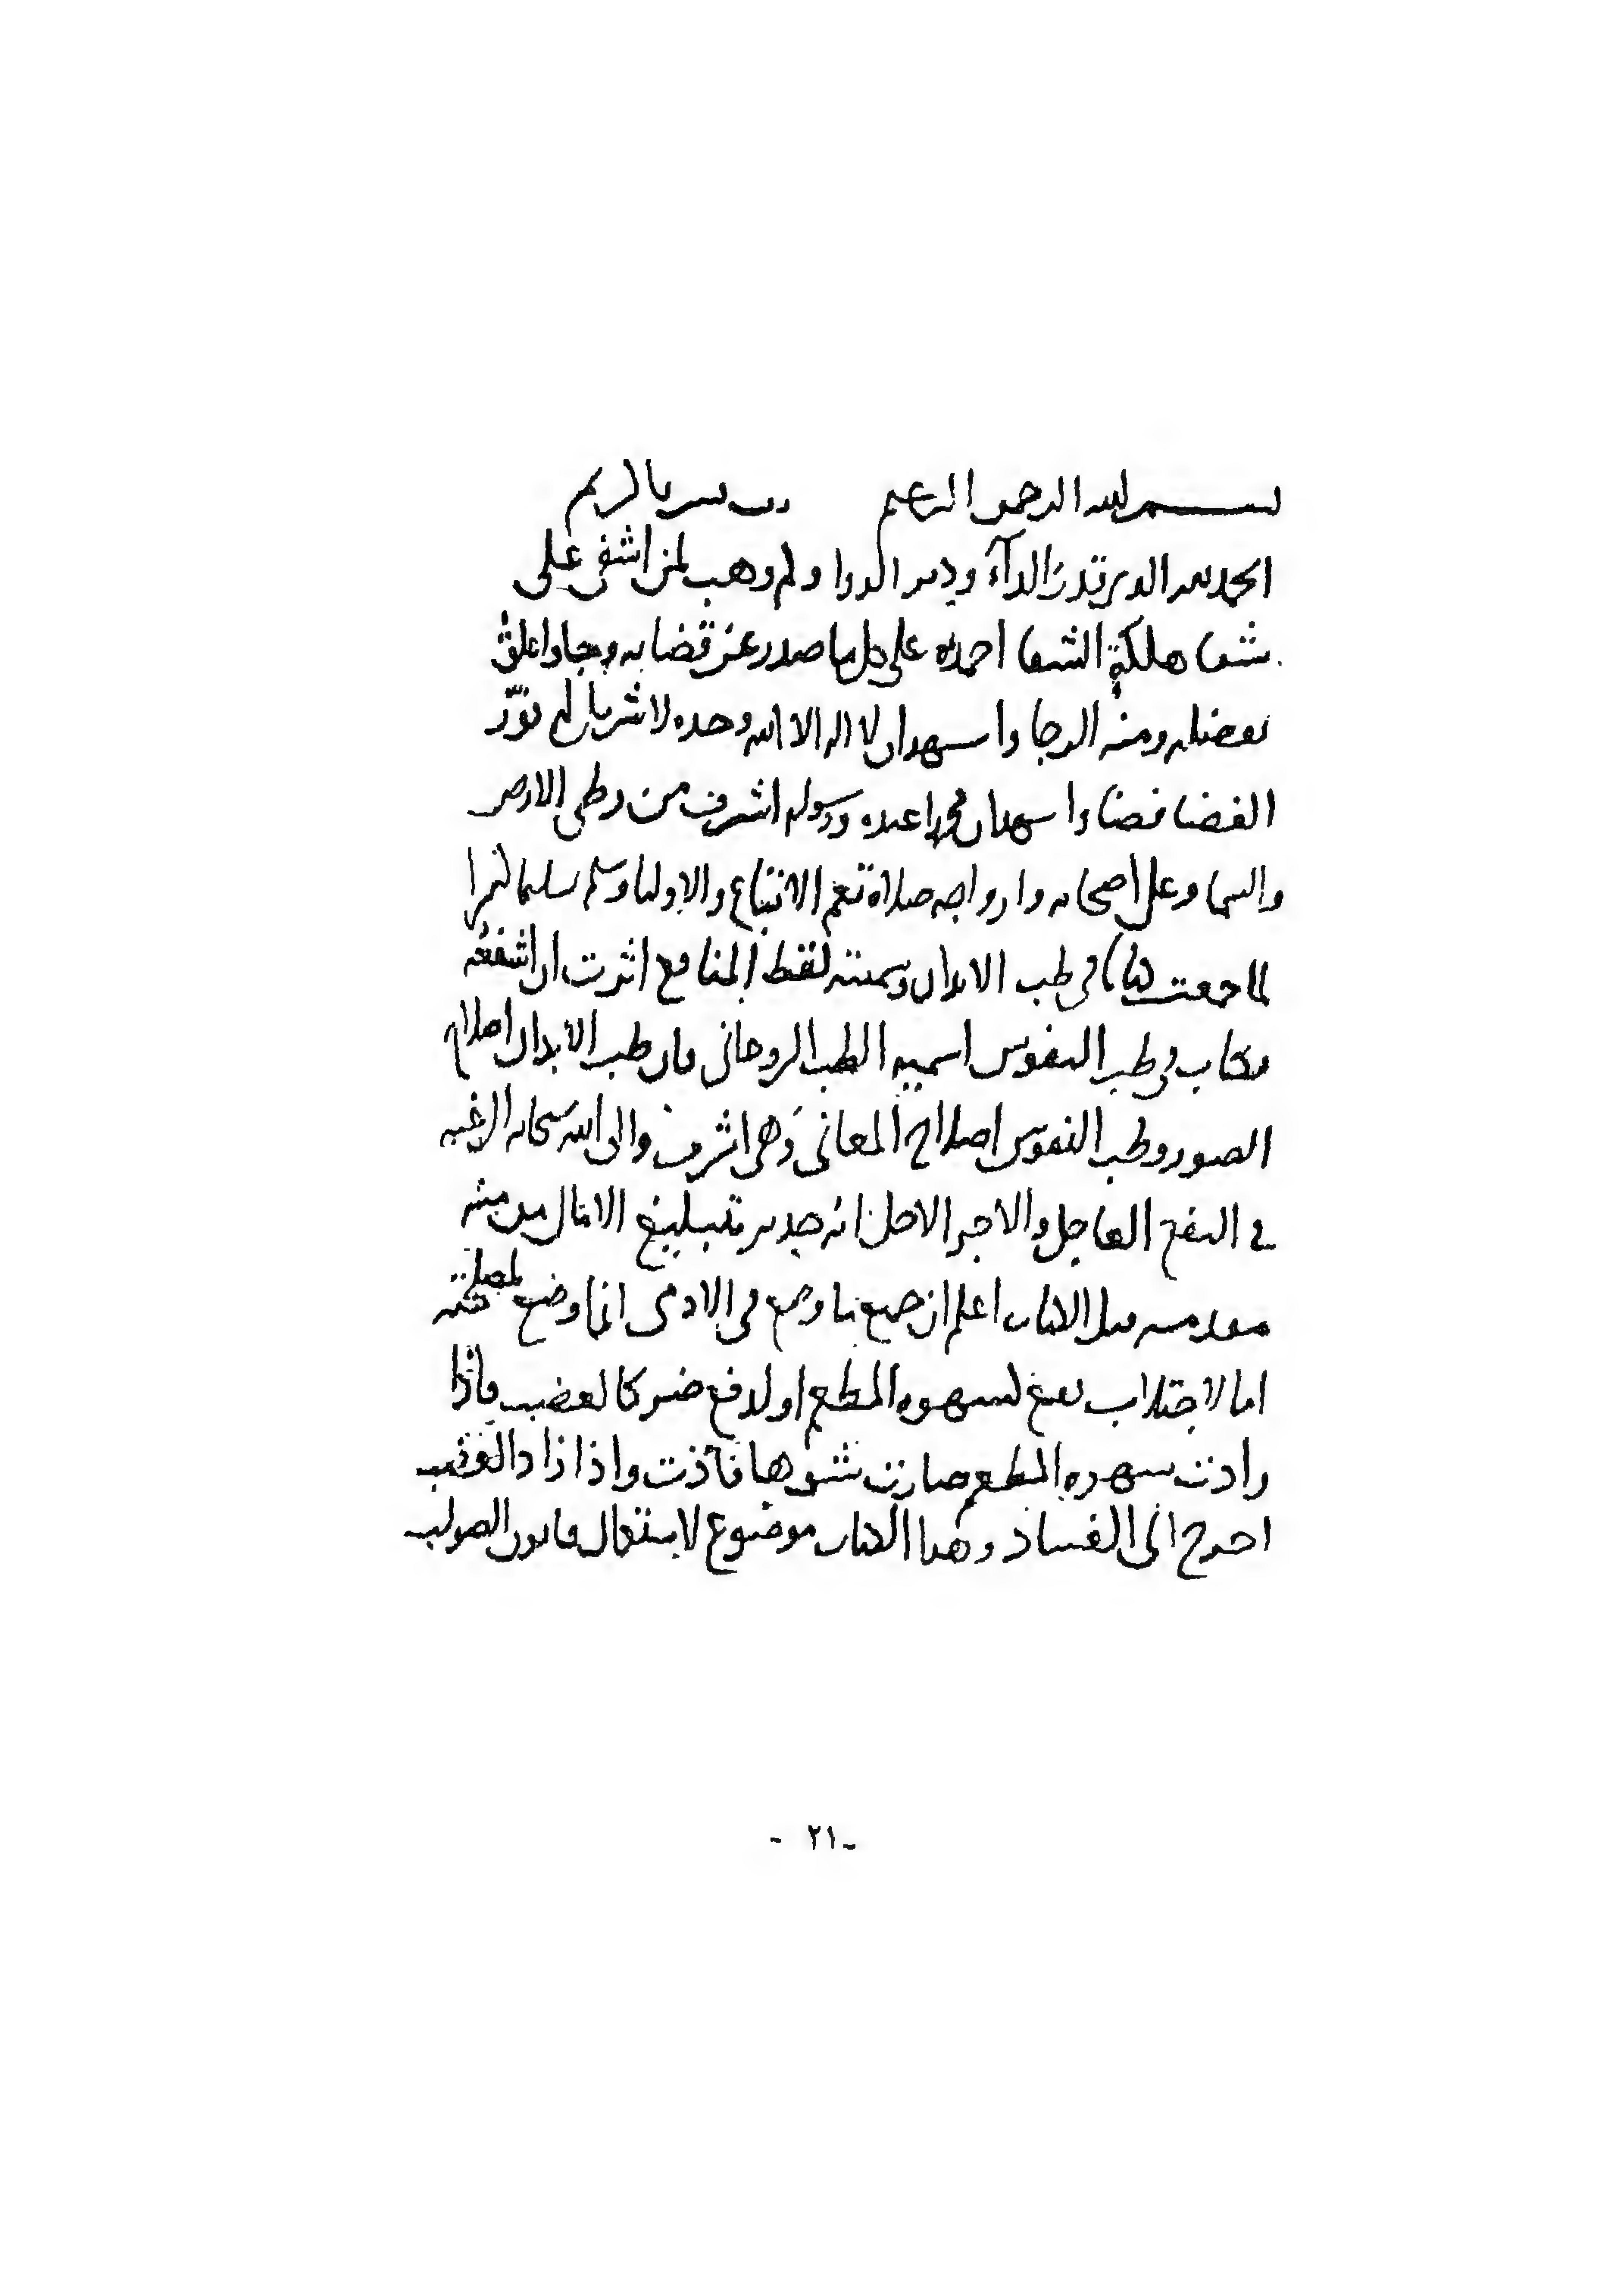 بسم الله الرحمن الرحيم رب يسر يا كريم
الحمد لله الذي قدر الداء ودبر الدوا ولم وهب لمن اشفى على
شفا هلكة الشفا احمده على كل ما صدر عن قضايه وجا واعلق
بفضله ومنه الرجا واشهد ان لا اله الا الله وحده لا شريك له نوّر
الفضا فضاء واشهد ان محمدا عبده ورسوله اشرف من وطى الارض
والسما وعلى اصحابه وازواجه صلاة تعم الاتباع والاوليا وسلم تسليما كثيرا
لما جمعت كتابا في طب الابدان وسميته لقط المنافع اثرت ان اشفعه
بكتاب في طب النفوس اسميه الطب الروحاني فان طب الابدان اصلاح
الصور وطب النفوس اصلاح المعاني وهى اشرف والى الله سبحانه الرغبه
في النفع العاجل والاجر الاجل انه جدير بتبليغ الامال من منه
مقدمه قبل الكتاب اعلم ان جميع ما وضع في الادمى انما وضع لمصلحته
اما لاجتلاب نفع كشهوه المطعم او لدفع ضر كالغضب فاذا
زادت شهوه المطعم صارت شرها فآذت واذا زاد الغضب
اخرج الى الفساد وهذا الكتاب موضوع لاستعمال قانون الصواب
- ٢١ -